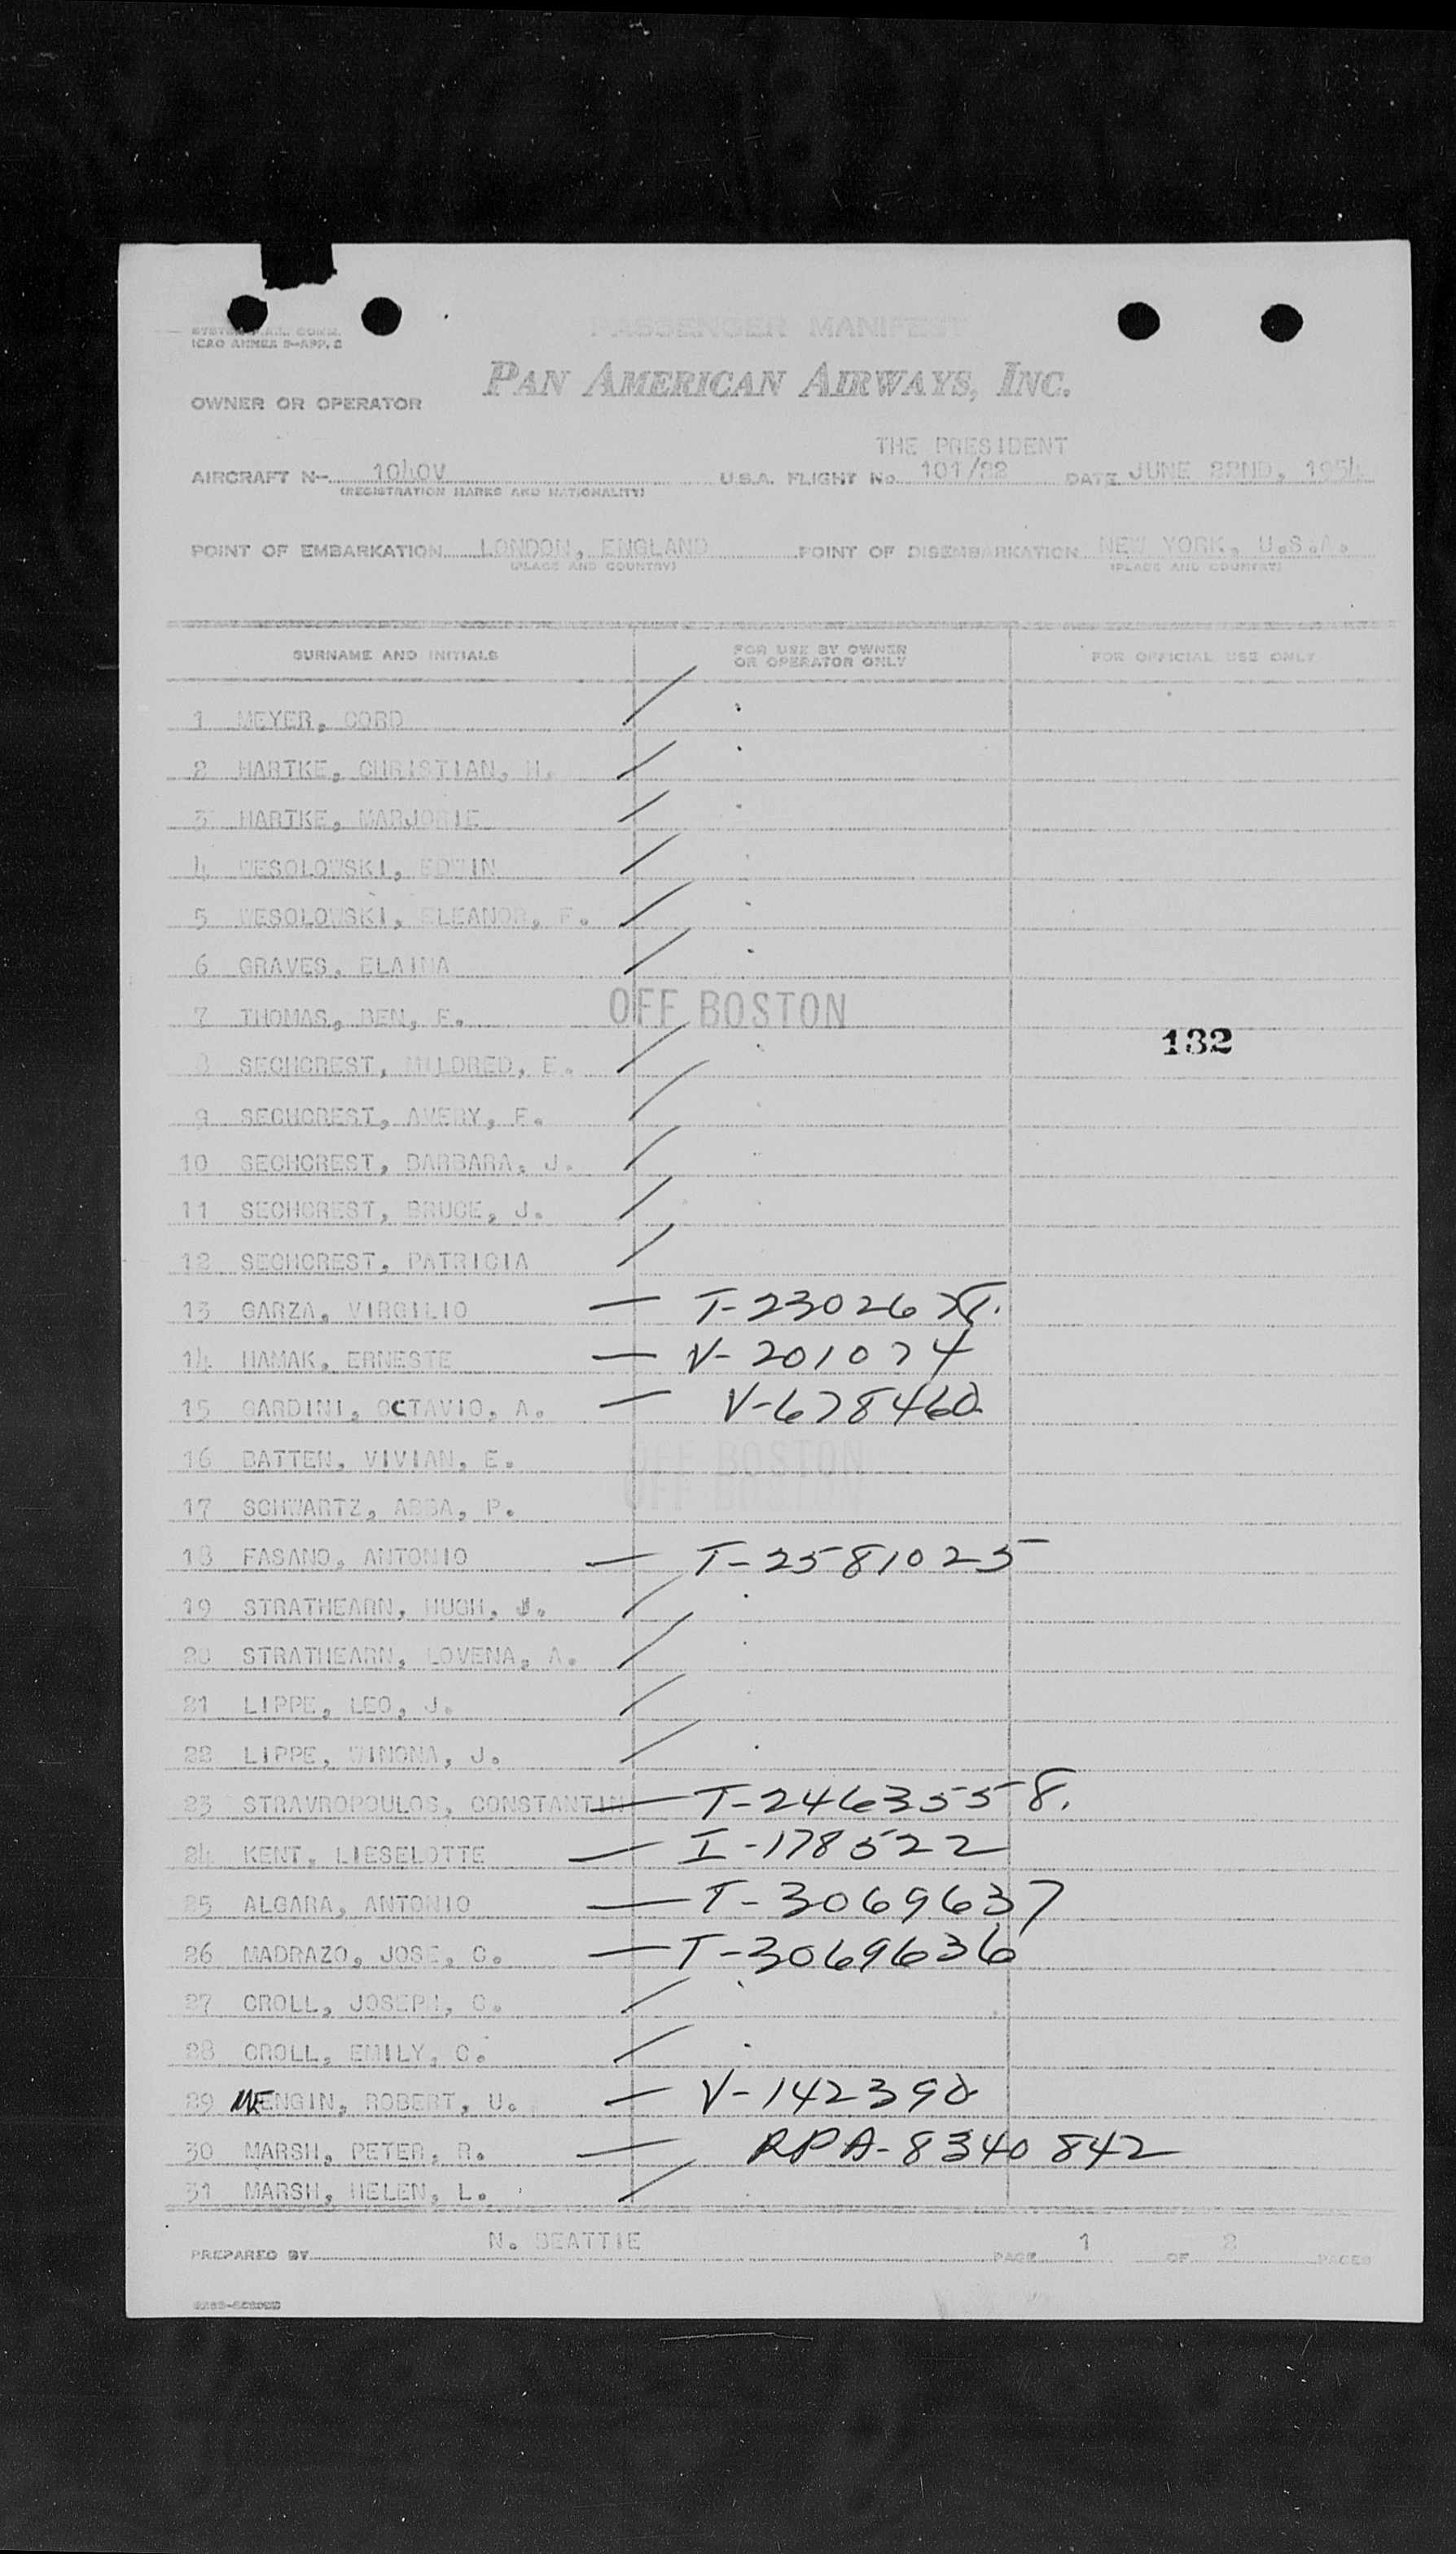 PASSENGER MANIFEST
ICAO ANNEX 9-APP. 2
PAN AMERICAN AIRWAYS, INC.
OWNER OR OPERATOR
THE PRESIDENT
AIRCRAFT N- 1040V U.S.A. FLIGHT No. 101/22 DATE JUNE 22ND, 1954
(REGISTRATION MARKS AND NATIONALITY)
POINT OF EMBARKATION LONDON, ENGLAND POINT OF DISEMBARKATION NEW YORK, U.S.A.
(PLACE AND COUNTRY) (PLACE AND COUNTRY)
SURNAME AND INITIALS FOR USE BY OWNER OR OPERATOR ONLY FOR OFFICIAL USE ONLY
1 MEYER, CORD
2 HARTKE, CHRISTIAN, H.
3 HARTKE, MARJORIE
4 WESOLOWSKI, EDWIN
5 WESOLOWSKI, ELEANOR, F.
6 GRAVES, ELAINA
7 THOMAS, BEN, E. OFF BOSTON
132
8 SECHCREST, MILDRED, E.
9 SECHCREST, AVERY, F.
10 SECHCREST, BARBARA, J.
11 SECHCREST, BRUCE, J.
12 SECHCREST, PATRICIA
13 GARZA, VIRGILIO —
14 HAMAK, ERNESTE — V-201074
15 GARDINI, OCTAVIO, A. — V-678460
16 BATTEN, VIVIAN, E. OFF BOSTON
17 SCHWARTZ, ABBA, P. OFF BOSTON
18 FASANO, ANTONIO — T-2581025
19 STRATHEARN, HUGH, J.
20 STRATHEARN, LOVENA, A.
21 LIPPE, LEO, J.
22 LIPPE, WINONA, J.
23 STRAVROPOULOS, CONSTANTIN — T-2463558.
24 KENT, LIESELOTTE — I-178522
25 ALGARA, ANTONIO — T-3069637
26 MADRAZO, JOSE, C. — T-3069636
27 CROLL, JOSEPH, C.
28 CROLL, EMILY, C.
29 MENGIN, ROBERT, U. — V-142390
30 MARSH, PETER, R. — RPA-8340842
31 MARSH, HELEN, L.
PREPARED BY N. BEATTIE PAGE 1 OF 2 PAGES